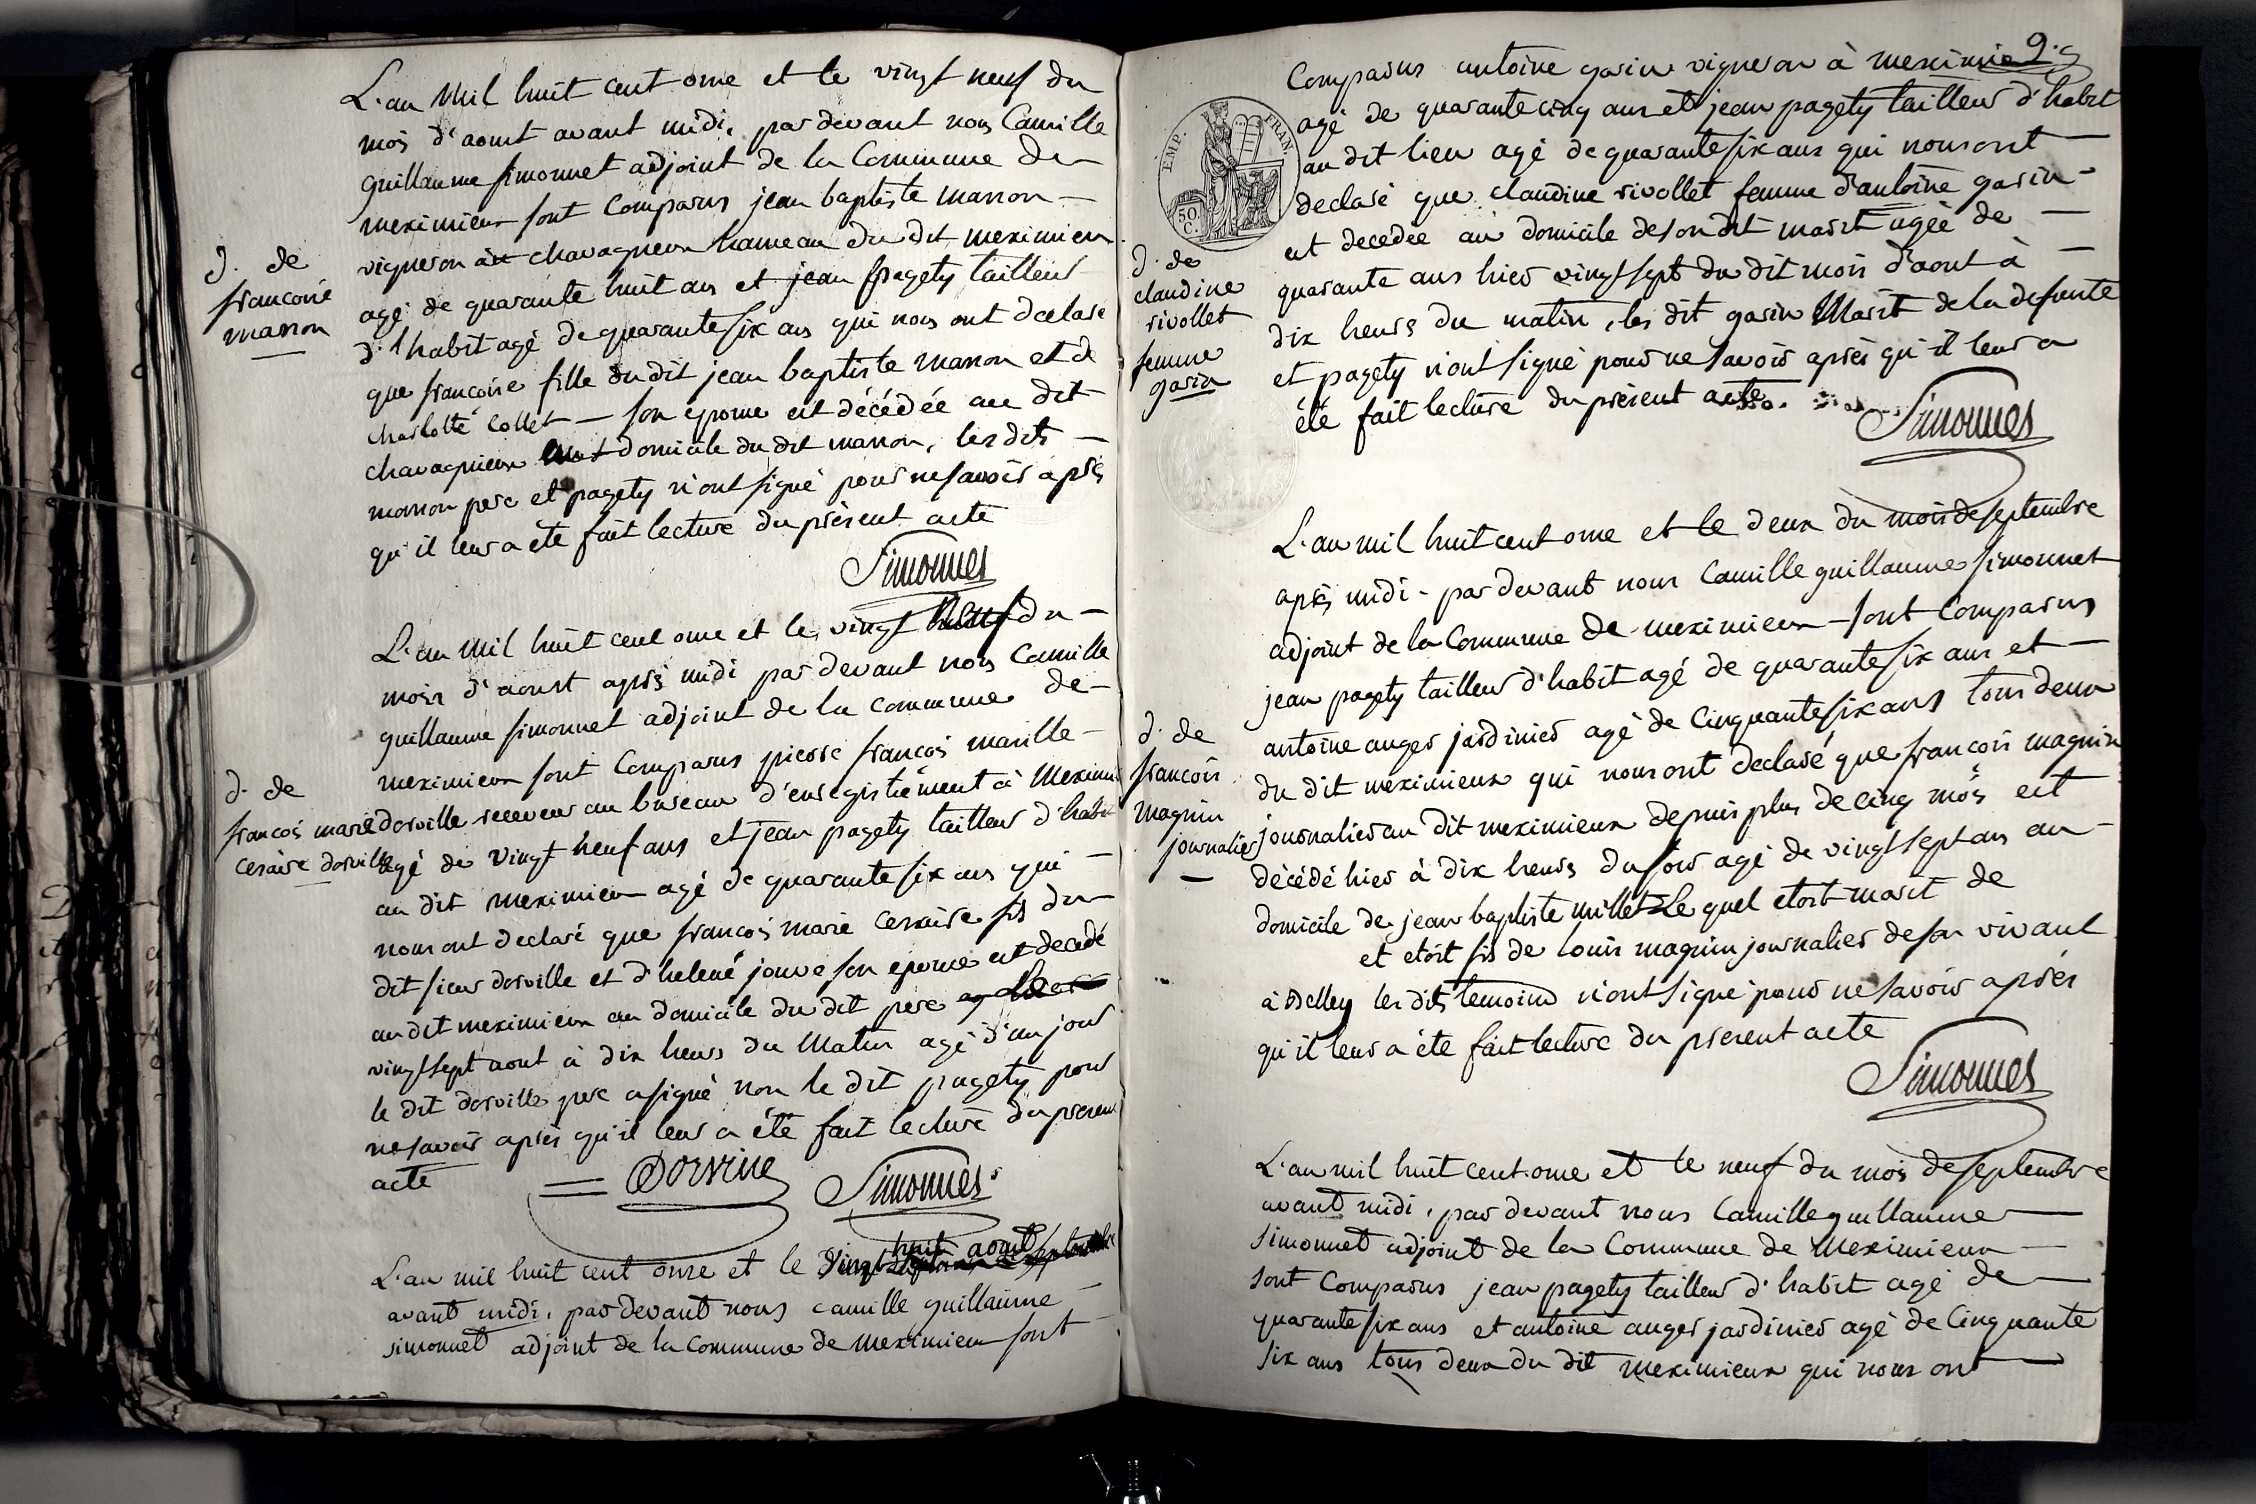 L'an mil huit cent onze et le vingt neuf du
mois d'aoust avant midi, par devant nous Camille
guillaume simonnet adjoint de la Commune de
meximieux sont Comparus jean baptiste manon
vigneron à chavagneux hameau du dit meximieux
agé de quarante huit ans et jean pagety tailleur
d'habit agé de quarante six ans qui nous ont declaré
que francoise fille du dit jean baptiste manon et de
charlotte Collet son epouse est décédée au dit
chavagnieux domicile du dit manon, les dits
manon pere et pagety n'ont signé pour ne savoir après
qu'il leur a été fait lecture du présent acte
Simonnet
d. de
francoise
manon
L'an mil huit cent onze et le vingt du
mois d'aoust après midi par devant nous Camille
guillaume simonnet adjoint de la commune de
meximieux sont Comparus pierre francois marille
dorville receveur au bureau d'enregistrement à Meximieux
agé de vingt neuf ans et jean pagety tailleur d'habit
au dit meximieux agé de quarante six ans qui
nous ont declaré que francois marie Cesaire fils du
dit sieur dorville et d'helené jouve son epouse est decedé
au dit meximieux au domicile du dit pere
vingt sept aout à dix heurs du Matin agé d'un jour
le dit dorville pere a signé non le dit pagety pour
ne savoir après qu'il leur a été fait lecture du present
acte
Dorville Simonnet
d. de
francois marie
cesaire dorville
L'an mil huit cent onze et le vingt huit aout
avant midi, par devant nous camille guillaume
simonnet adjoint de la commune de meximieux sont
9.
Comparus antoine garin vigneron à meximieux
agé de quarante cinq ans et jean pagety tailleur d'habit
au dit lieu agé de quarante six ans qui nous ont
declaré que claudine rivollet femme d'antoine garin
est decedée au domicile de son dit marit agée de
quarante ans hier vingt sept du dit mois d'aout à
dix heurs du matin, les dit garin Marit de la defunte
et pagety n'ont signé pour ne savoir après qu'il leur a
été fait lecture du présent acte.
Simonnet
EMP. FRAN.
50
C.
d. de
claudine
rivollet
femme
garin
L'an mil huit cent onze et le deux du mois de septembre
après midi par devant nous Camille guillaume simonnet
adjoint de la Commune de meximieux sont Comparus
jean pagety tailleur d'habit agé de quarante six ans et
antoine auger jardinier agé de Cinquante six ans tous deux
du dit meximieux qui nous ont declaré que françois magnin
journalier au dit meximieux depuis plus de cinq mois est
décédé hier à dix heurs du soir agé de vingt sept ans au
domicile de jean baptiste millet Le quel etoit marit de
et etoit fils de louis magnin journalier de son vivant
à Belley les dits temoins n'ont signé pour ne savoir après
qu'il leur a été fait lecture du present acte
Simonnet
d. de
francois
magnin
journalier
L'an mil huit cent onze et le neuf du mois de septembre
avant midi, par devant nous Camille guillaume
simonnet adjoint de la Commune de Meximieux
sont Comparus jean pagety tailleur d'habit agé de
quarante six ans et antoine auger jardinier agé de Cinquante
six ans tous deux du dit meximieux qui nous ont